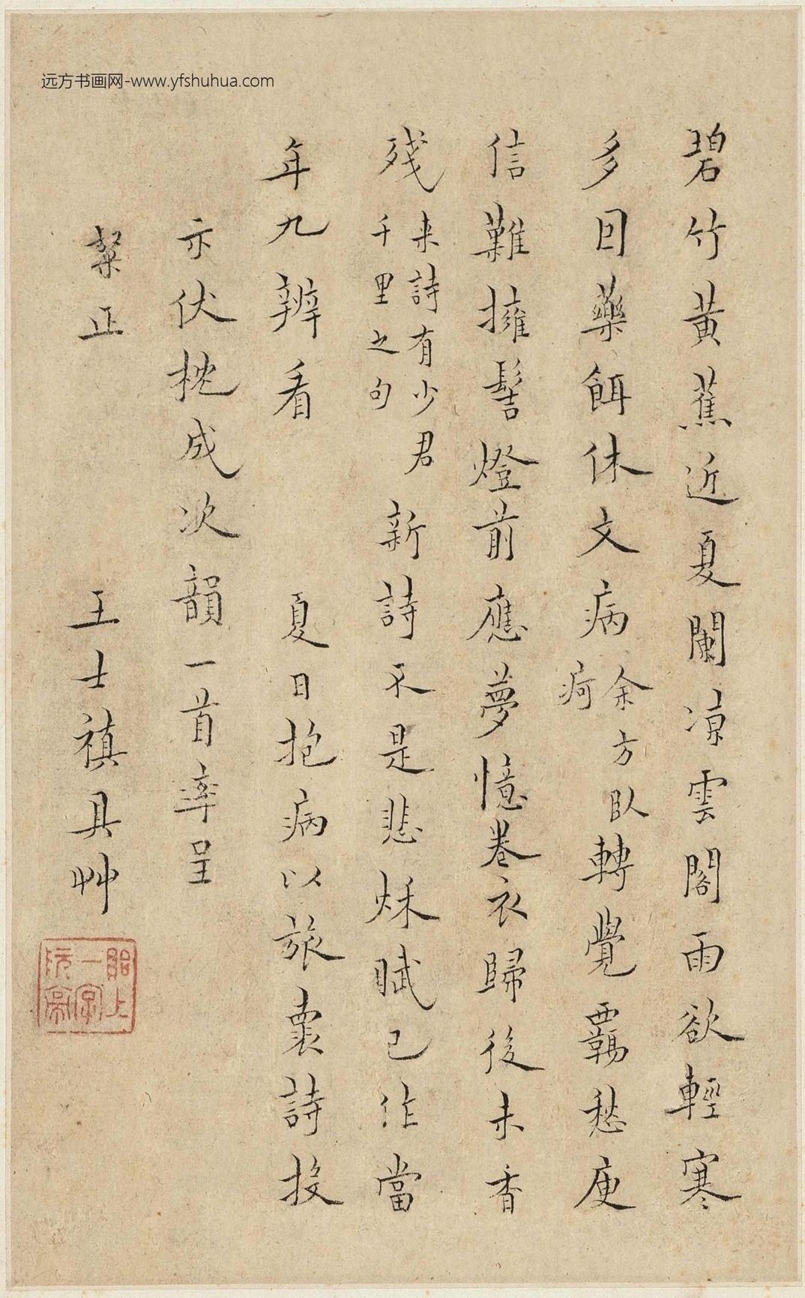 远方书画网-www.yfshuhua.com
碧竹黄蕉近夏闌凉雲閣雨欲輕寒
多因藥餌休文病余方臥疴轉覺羈愁庾
信難擁髻燈前應夢憶卷衣歸後未香
殘来詩有少君千里之句新詩不是悲秌賦已作當
年九辨看 夏日抱病以旅裏詩投
示伏枕成次韻一首率呈
粲正 王士禛具艸